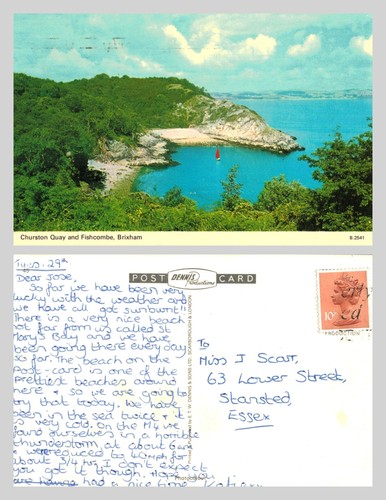 Churston Quay and Fishcombe, Brixham
B.2541
Tues. 29th
Dear Jose,
So far we have been very
lucky with the weather and
we have all got sunburnt!
There is a very nice beach
not far from us called St
Mary's Bay and we have
been going there everyday
so far. The beach on the
post-card is one of the
prettiest beaches around
here & so we are going to
try that today. We have
been in the sea twice & it
is very cold. On the M4 we
found ourselves in a horrible
thunderstorm, at about 6am
& were reduced to 40mph for
about 3/4 hrs. I don't expect
you got it though. Hope
had a nice time
POST DENNIS Productions CARD
10P
To
Miss J Scarr,
63 Lower Street,
Stansted,
Essex